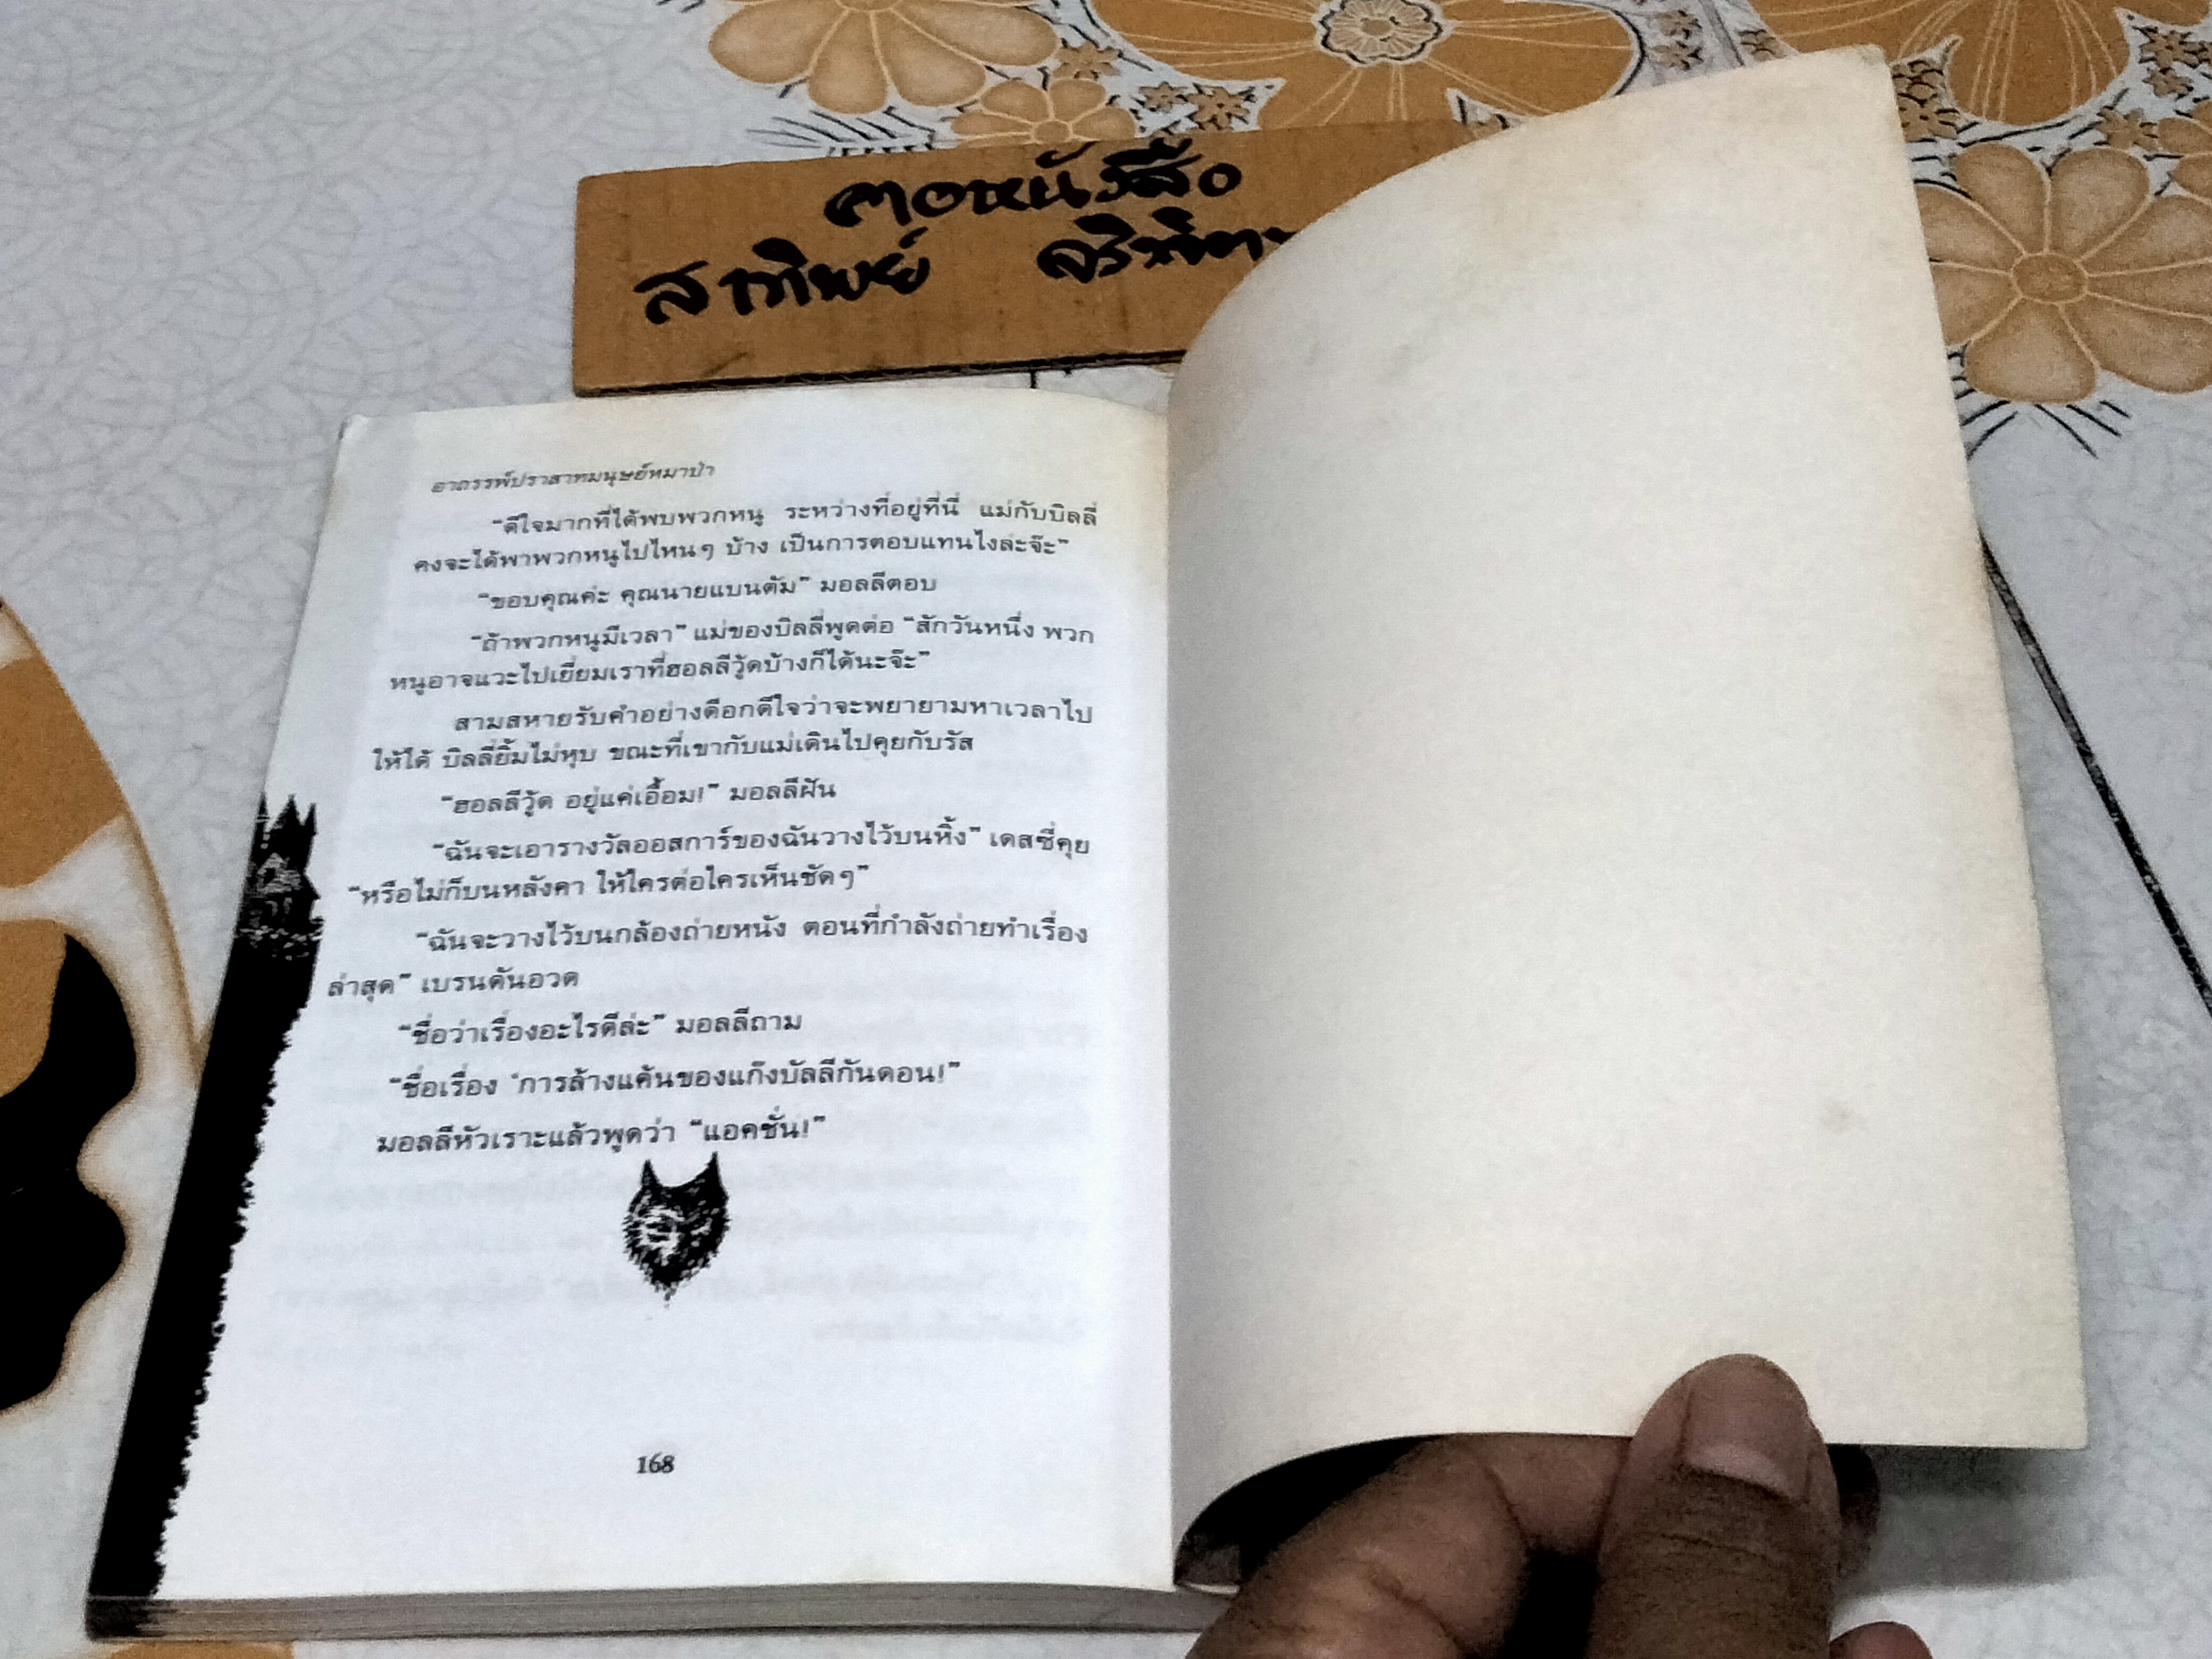 คอหนังสือ
สาทิพย์
อาถรรพ์ปราสาทมนุษย์หมาป่า
“ดีใจมากที่ได้พบพวกหนู ระหว่างที่อยู่ที่นี่ แม่กับบิลลี่
คงจะได้พาพวกหนูไปไหนๆ บ้าง เป็นการตอบแทนไงล่ะจ๊ะ”
“ขอบคุณค่ะ คุณนายแบนตัม” มอลลีตอบ
“ถ้าพวกหนูมีเวลา” แม่ของบิลลี่พูดต่อ “สักวันหนึ่ง พวก
หนูอาจแวะไปเยี่ยมเราที่ฮอลลีวู้ดบ้างก็ได้นะจ๊ะ”
สามสหายรับคำอย่างดีอกดีใจว่าจะพยายามหาเวลาไป
ให้ได้ บิลลี่ยิ้มไม่หุบ ขณะที่เขากับแม่เดินไปคุยกับรัส
“ฮอลลีวู้ด อยู่แค่เอื้อม!” มอลลีฝัน
“ฉันจะเอารางวัลออสการ์ของฉันวางไว้บนหิ้ง” เดสซี่คุย
“หรือไม่ก็บนหลังคา ให้ใครต่อใครเห็นชัดๆ”
“ฉันจะวางไว้บนกล้องถ่ายหนัง ตอนที่กำลังถ่ายทำเรื่อง
ล่าสุด” เบรนดันอวด
“ชื่อว่าเรื่องอะไรดีล่ะ” มอลลีถาม
“ชื่อเรื่อง ‘การล้างแค้นของแก๊งบัลลีกันดอน!”
มอลลีหัวเราะแล้วพูดว่า “แอคชั่น!”
168